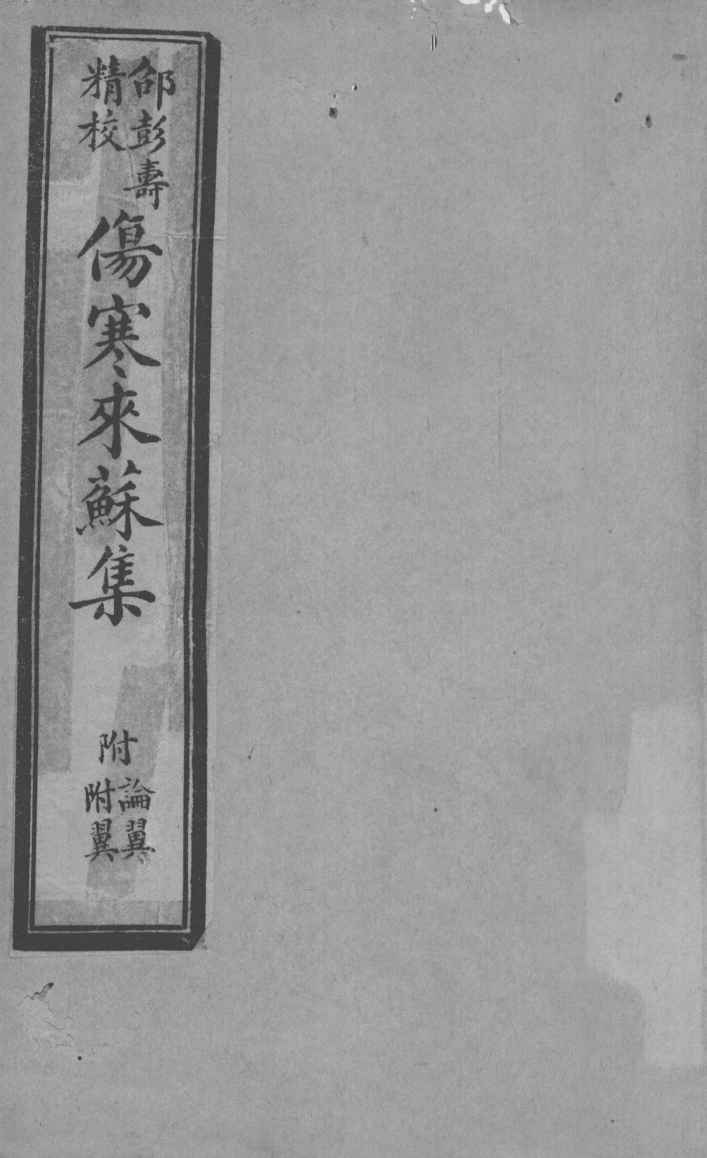 邵彭壽
精校
傷寒來蘇集
附
論翼
附翼